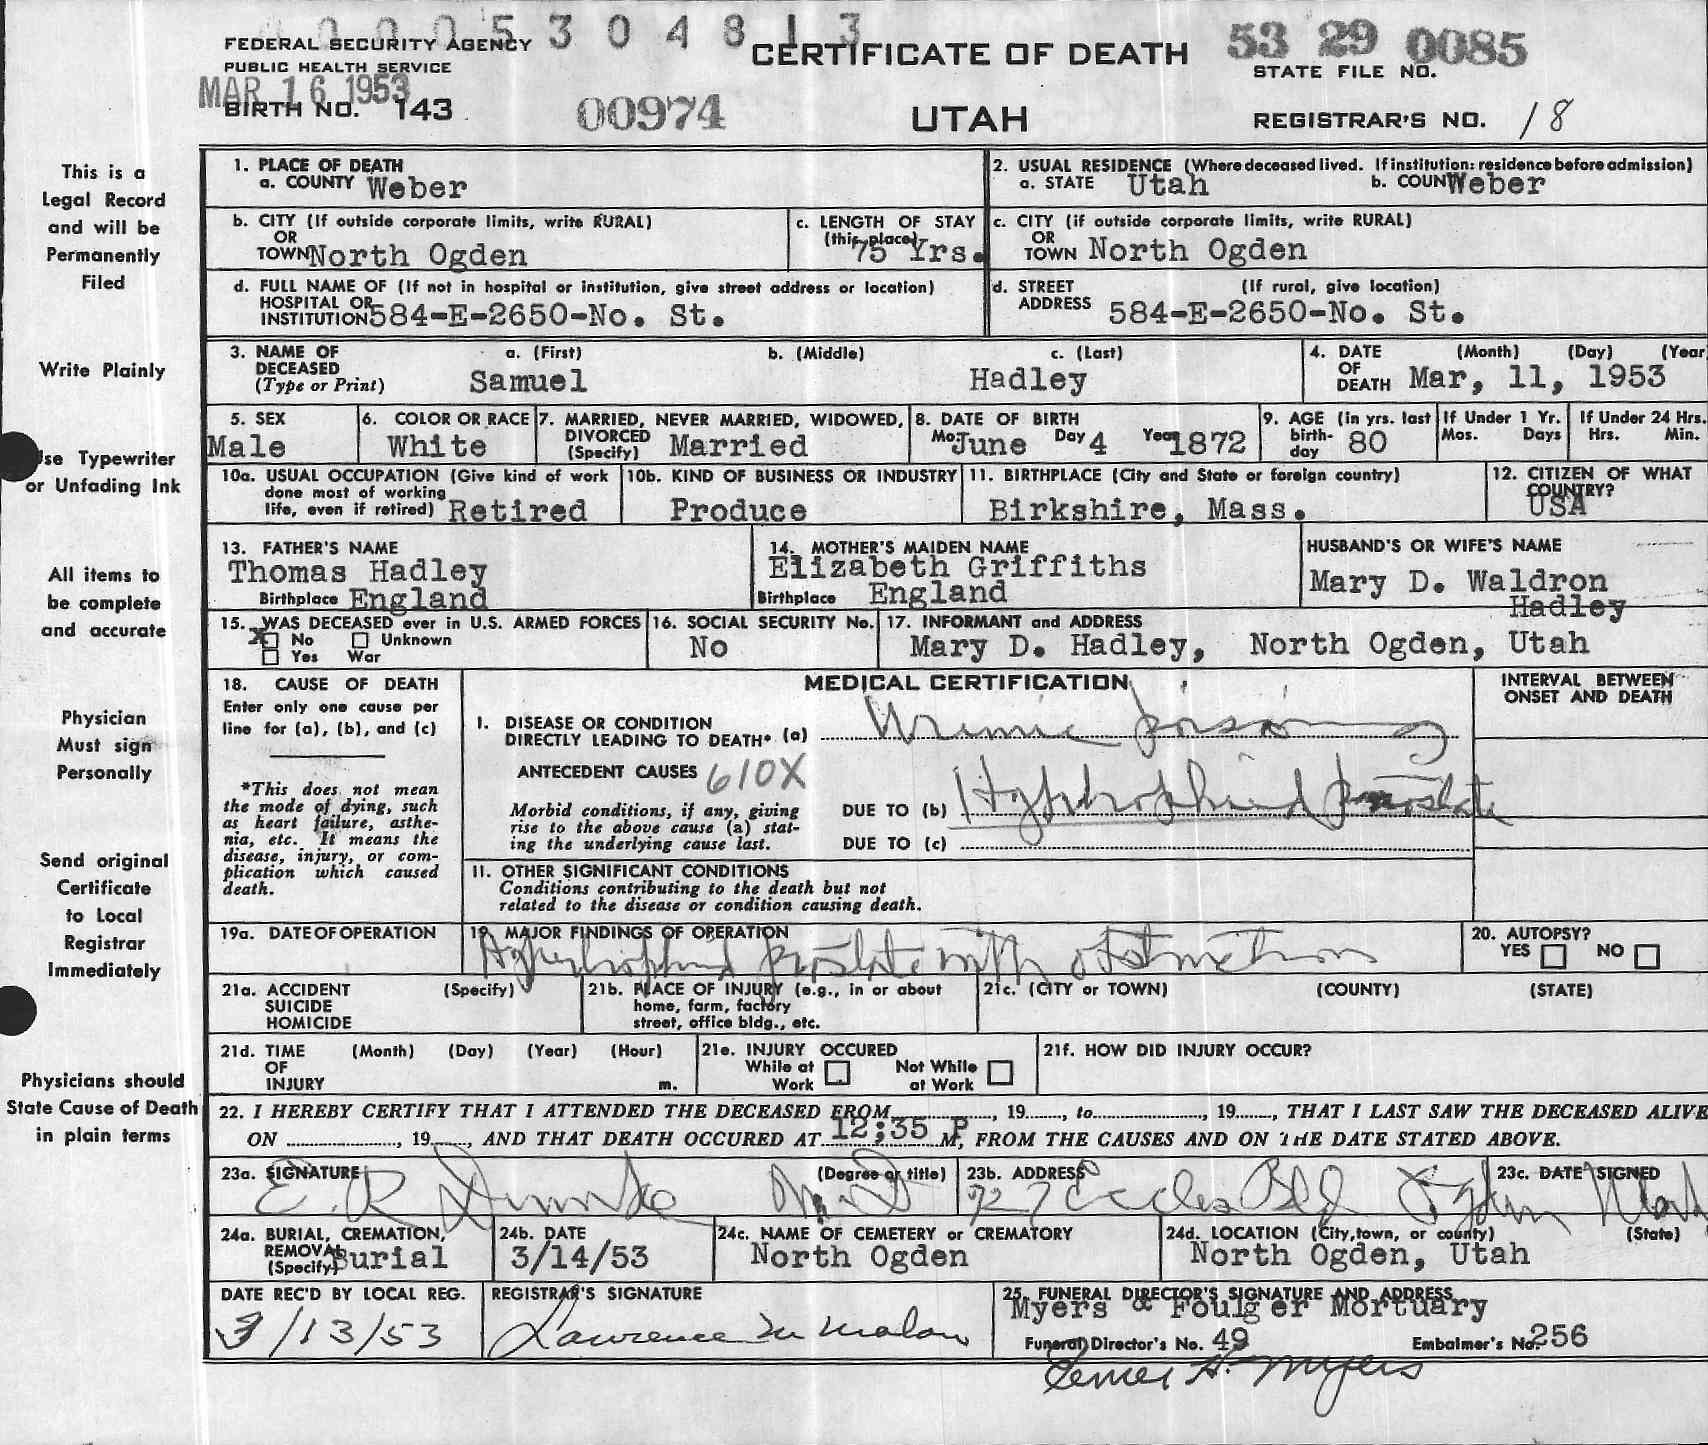 0 0 0 5 3 0 4 8 1 3
FEDERAL SECURITY AGENCY
PUBLIC HEALTH SERVICE
MAR 16 1953
BIRTH NO. 143
00974
CERTIFICATE OF DEATH
UTAH
53 29 0085
STATE FILE NO.
REGISTRAR'S NO. 18
This is a
Legal Record
and will be
Permanently
Filed
Write Plainly
Use Typewriter
or Unfading Ink
All items to
be complete
and accurate
Physician
Must sign
Personally
Send original
Certificate
to Local
Registrar
Immediately
Physicians should
State Cause of Death
in plain terms
1. PLACE OF DEATH
a. COUNTY Weber
2. USUAL RESIDENCE (Where deceased lived. If institution: residence before admission)
a. STATE Utah b. COUN Weber
b. CITY (If outside corporate limits, write RURAL)
OR
TOWN North Ogden
c. LENGTH OF STAY
(this place)
75 Yrs.
c. CITY (if outside corporate limits, write RURAL)
OR
TOWN North Ogden
d. FULL NAME OF (If not in hospital or institution, give street address or location)
HOSPITAL OR
INSTITUTION 584-E-2650-No. St.
d. STREET (If rural, give location)
ADDRESS 584-E-2650-No. St.
3. NAME OF
DECEASED
(Type or Print)
a. (First) b. (Middle) c. (Last)
Samuel Hadley
4. DATE (Month) (Day) (Year
OF
DEATH Mar, 11, 1953
5. SEX
Male
6. COLOR OR RACE
White
7. MARRIED, NEVER MARRIED, WIDOWED,
DIVORCED
(Specify) Married
8. DATE OF BIRTH
Mo June Day 4 Year 1872
9. AGE (in yrs. last
birth-
day 80
If Under 1 Yr.
Mos. Days
If Under 24 Hrs.
Hrs. Min.
10a. USUAL OCCUPATION (Give kind of work
done most of working
life, even if retired) Retired
10b. KIND OF BUSINESS OR INDUSTRY
Produce
11. BIRTHPLACE (City and State or foreign country)
Birkshire, Mass.
12. CITIZEN OF WHAT
COUNTRY?
USA
13. FATHER'S NAME
Thomas Hadley
Birthplace England
14. MOTHER'S MAIDEN NAME
Elizabeth Griffiths
Birthplace England
HUSBAND'S OR WIFE'S NAME
Mary D. Waldron
Hadley
15. WAS DECEASED ever in U.S. ARMED FORCES
X No Unknown
Yes War
16. SOCIAL SECURITY No.
No
17. INFORMANT and ADDRESS
Mary D. Hadley, North Ogden, Utah
18. CAUSE OF DEATH
Enter only one cause per
line for (a), (b), and (c)
*This does not mean
the mode of dying, such
as heart failure, asthe-
nia, etc. It means the
disease, injury, or com-
plication which caused
death.
MEDICAL CERTIFICATION
I. DISEASE OR CONDITION
DIRECTLY LEADING TO DEATH* (a) Uremic poisoning
ANTECEDENT CAUSES 610X
Morbid conditions, if any, giving
rise to the above cause (a) stat-
ing the underlying cause last.
DUE TO (b) Hypertrophied prostate
DUE TO (c)
II. OTHER SIGNIFICANT CONDITIONS
Conditions contributing to the death but not
related to the disease or condition causing death.
INTERVAL BETWEEN
ONSET AND DEATH
19a. DATE OF OPERATION
19. MAJOR FINDINGS OF OPERATION
Hypertrophied prostate with obstruction
20. AUTOPSY?
YES NO
21a. ACCIDENT (Specify)
SUICIDE
HOMICIDE
21b. PLACE OF INJURY (e.g., in or about
home, farm, factory
street, office bldg., etc.
21c. (CITY or TOWN) (COUNTY) (STATE)
21d. TIME (Month) (Day) (Year) (Hour)
OF
INJURY m.
21e. INJURY OCCURED
While at Not While
Work at Work
21f. HOW DID INJURY OCCUR?
22. I HEREBY CERTIFY THAT I ATTENDED THE DECEASED FROM, 19, to, 19, THAT I LAST SAW THE DECEASED ALIVE
ON, 19, AND THAT DEATH OCCURED AT 12;35 P M, FROM THE CAUSES AND ON THE DATE STATED ABOVE.
23a. SIGNATURE (Degree or title)
E. R. Dumke M.D
23b. ADDRESS
727 Eccles Bld Ogden Utah
23c. DATE SIGNED
24a. BURIAL, CREMATION,
REMOVAL
(Specify) Burial
24b. DATE
3/14/53
24c. NAME OF CEMETERY or CREMATORY
North Ogden
24d. LOCATION (City, town, or county) (State)
North Ogden, Utah
DATE REC'D BY LOCAL REG.
3/13/53
REGISTRAR'S SIGNATURE
Lawrence M Malan
25. FUNERAL DIRECTOR'S SIGNATURE AND ADDRESS
Myers & Foulger Mortuary
Funeral Director's No. 49 Embalmer's No. 256
H. Myers